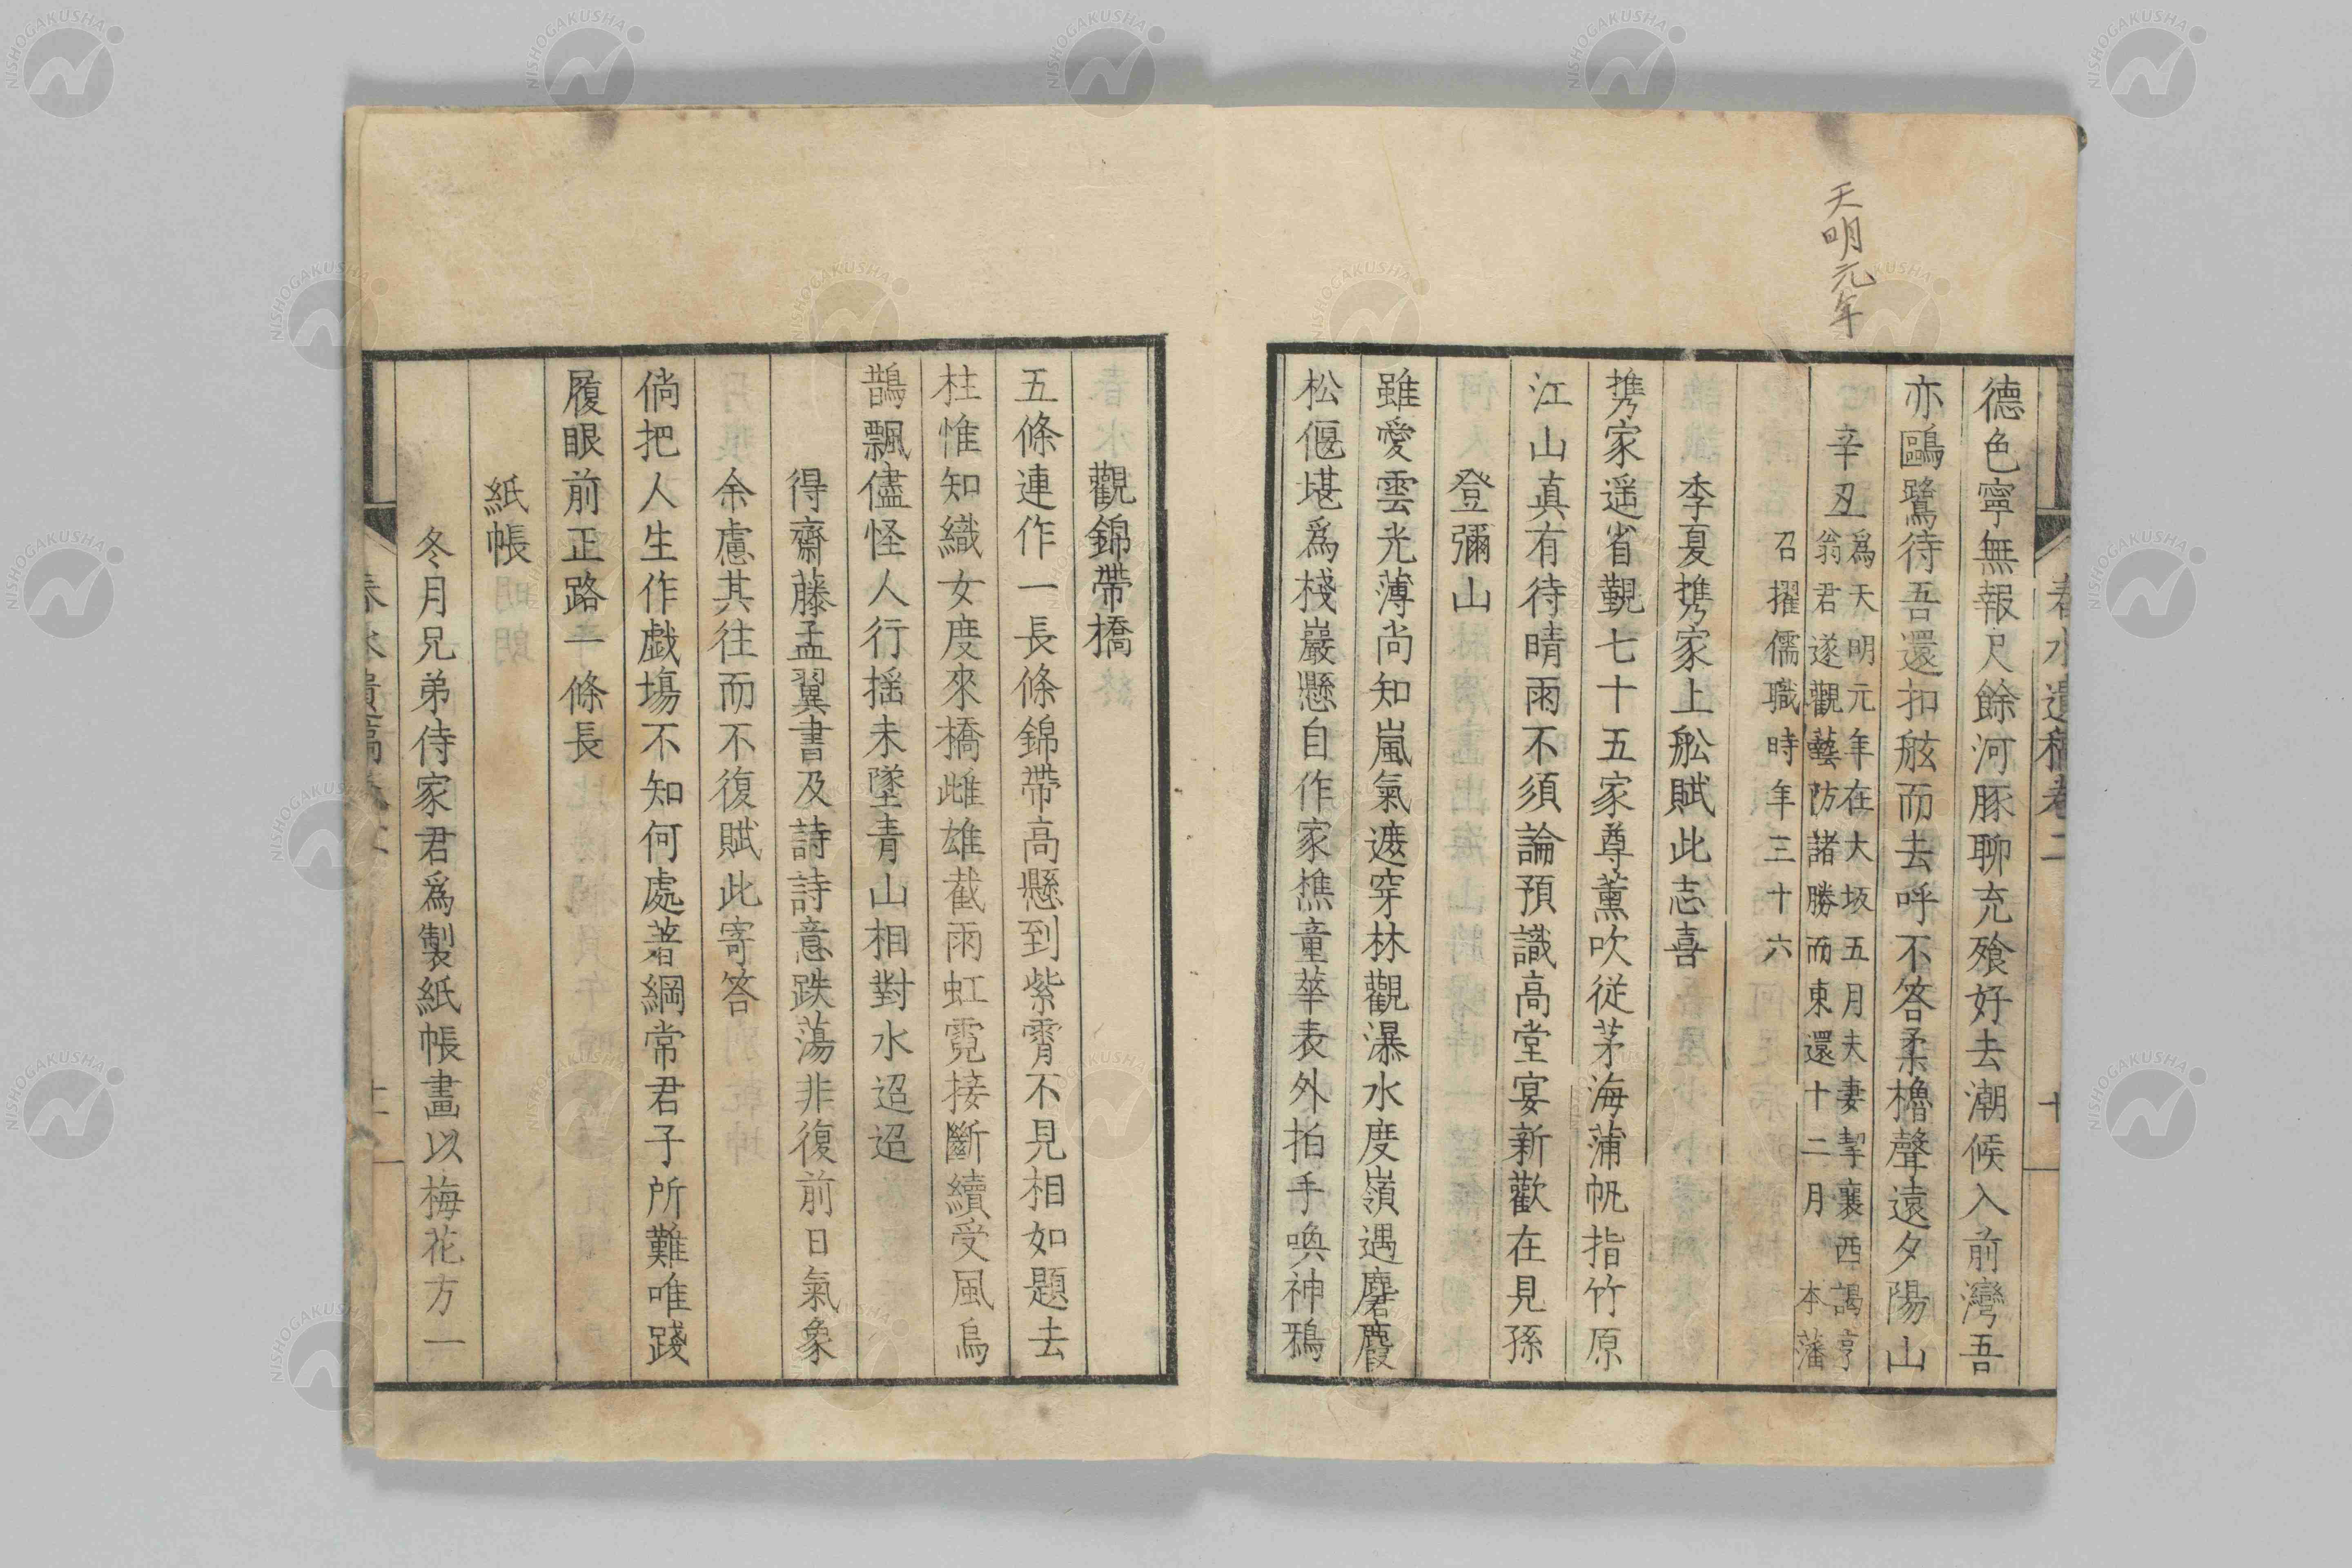 天明元年
春水遺稿卷二
十
德色寧無報尺餘河豚聊充飱好去潮候入前灣吾
亦鷗鷺待吾還扣舷而去呼不答柔櫓聲遠夕陽山
辛丑
爲天明元年在大坂五月夫妻挈襄西謁亨
翁君遂觀藝防諸勝而東還十二月 本藩
召擢儒職時年三十六
季夏携家上舩賦此志喜
携家遥省覲七十五家尊薰吹従茅海蒲帆指竹原
江山真有待晴雨不須論預識高堂宴新歡在見孫
登彌山
雖愛雲光薄尚知嵐氣遮穿林觀瀑水度嶺遇麏麚
松偃堪爲棧巖懸自作家樵童華表外拍手喚神鴉
觀錦帶橋
五條連作一長條錦帶高懸到紫霄不見相如題去
柱惟知織女度來橋雌雄截雨虹霓接斷續受風烏
鵲飄儘怪人行揺未墜青山相對水迢迢
得齋藤孟翼書及詩詩意跌蕩非復前日氣象
余慮其往而不復賦此寄答
倘把人生作戯塲不知何處著綱常君子所難唯踐
履眼前正路一條長
紙帳
冬月兄弟侍家君爲製紙帳畫以梅花方一
NISHOGAKUSHA